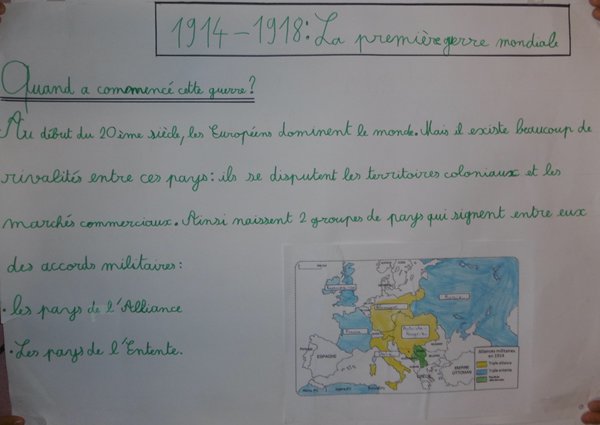 1914-1918: La première gerre mondiale
Quand a commencé cette guerre?
Au début du 20ème siècle, les Européens dominent le monde. Mais il existe beaucoup de
rivalités entre ces pays: ils se disputent les territoires coloniaux et les
marchés commerciaux. Ainsi naissent 2 groupes de pays qui signent entre eux
des accords militaires:
· les pays de l'Alliance
· Les pays de l'Entente.
ESPAGNE
EMPIRE
OTTOMAN
Alliances militaires
en 1914
Triple alliance
Triple entente